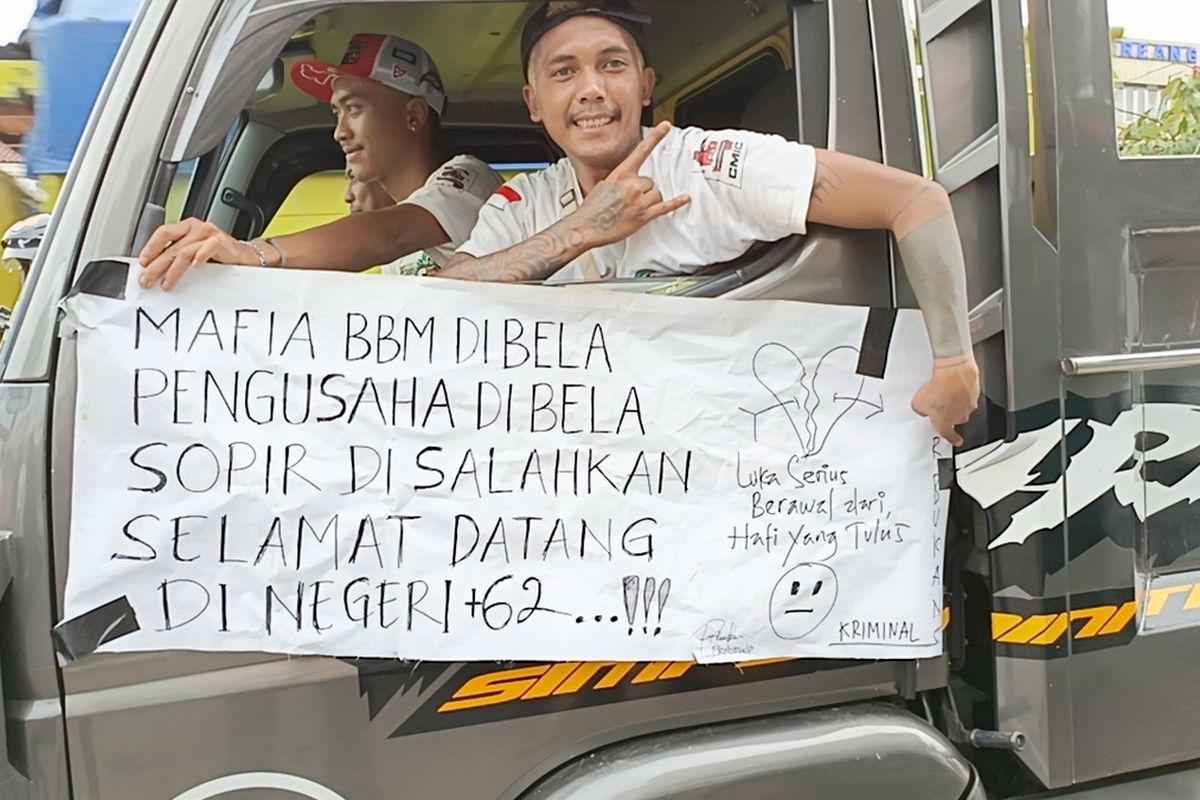 MAFIA BBM DIBELA
PENGUSAHA DIBELA
SOPIR DISALAHKAN
SELAMAT DATANG
DI NEGERI +62...!!!
Luka Serius
Berawal dari,
Hati Yang Tulus
KRIMINAL
BUKAN
CMIC
REANG